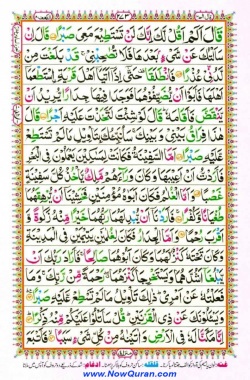 قَالَ اَلَمْ اَقُلْ لَّكَ اِنَّكَ لَنْ تَسْتَطِيْعَ مَعِيَ صَبْرًا قَالَ اِنْ
سَاَلْتُكَ عَنْ شَيْءٍۭ بَعْدَهَا فَلَا تُصٰحِبْنِيْ قَدْ بَلَغْتَ مِنْ
لَّدُنِّيْ عُذْرًا فَانْطَلَقَا حَتّٰى اِذَا اَتَيَا اَهْلَ قَرْيَةِ اسْتَطْعَمَا
اَهْلَهَا فَاَبَوْا اَنْ يُّضَيِّفُوْهُمَا فَوَجَدَا فِيْهَا جِدَارًا يُّرِيْدُ اَنْ
يَّنْقَضَّ فَاَقَامَهٗ قَالَ لَوْ شِئْتَ لَتَّخَذْتَ عَلَيْهِ اَجْرًا قَالَ
هٰذَا فِرَاقُ بَيْنِيْ وَبَيْنِكَ سَاُنَبِّئُكَ بِتَاْوِيْلِ مَا لَمْ تَسْتَطِعْ
عَّلَيْهِ صَبْرًا اَمَّا السَّفِيْنَةُ فَكَانَتْ لِمَسٰكِيْنَ يَعْمَلُوْنَ فِي الْبَحْرِ
فَاَرَدْتُّ اَنْ اَعِيْبَهَا وَكَانَ وَرَآءَهُمْ مَّلِكٌ يَّاْخُذُ كُلَّ سَفِيْنَةٍ
غَصْبًا وَاَمَّا الْغُلٰمُ فَكَانَ اَبَوٰهُ مُؤْمِنَيْنِ فَخَشِيْنَا اَنْ يُّرْهِقَهُمَا
طُغْيَانًا وَّكُفْرًا فَاَرَدْنَا اَنْ يُّبْدِلَهُمَا رَبُّهُمَا خَيْرًا مِّنْهُ زَكٰوةً وَّ
اَقْرَبَ رُحْمًا وَاَمَّا الْجِدَارُ فَكَانَ لِغُلٰمَيْنِ يَتِيْمَيْنِ فِي الْمَدِيْنَةِ
وَكَانَ تَحْتَهٗ كَنْزٌ لَّهُمَا وَكَانَ اَبُوْهُمَا صَالِحًا فَاَرَادَ رَبُّكَ اَنْ
يَّبْلُغَآ اَشُدَّهُمَا وَيَسْتَخْرِجَا كَنْزَهُمَا رَحْمَةً مِّنْ رَّبِّكَ وَمَا
فَعَلْتُهٗ عَنْ اَمْرِيْ ذٰلِكَ تَاْوِيْلُ مَا لَمْ تَسْطِعْ عَّلَيْهِ صَبْرًا
وَيَسْئَلُوْنَكَ عَنْ ذِي الْقَرْنَيْنِ قُلْ سَاَتْلُوْا عَلَيْكُمْ مِّنْهُ ذِكْرًا
اِنَّا مَكَّنَّا لَهٗ فِي الْاَرْضِ وَاٰتَيْنٰهُ مِنْ كُلِّ شَيْءٍ سَبَبًا فَاَتْبَعَ
www.NowQuran.com